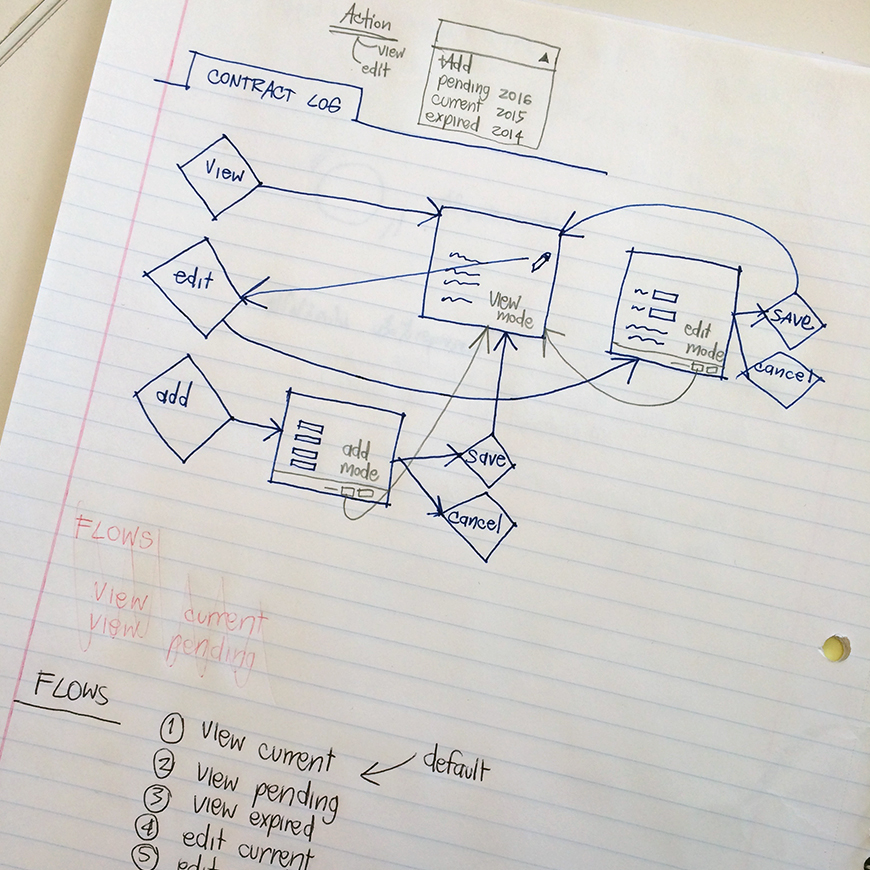 Action
view
edit
+Add
pending 2016
current 2015
expired 2014
CONTRACT LOG
View
edit
add
view
mode
edit
mode
SAVE
cancel
add
mode
save
cancel
FLOWS
View current
View pending
FLOWS
1 view current
default
2 view pending
3 view expired
4 edit current
5 edit